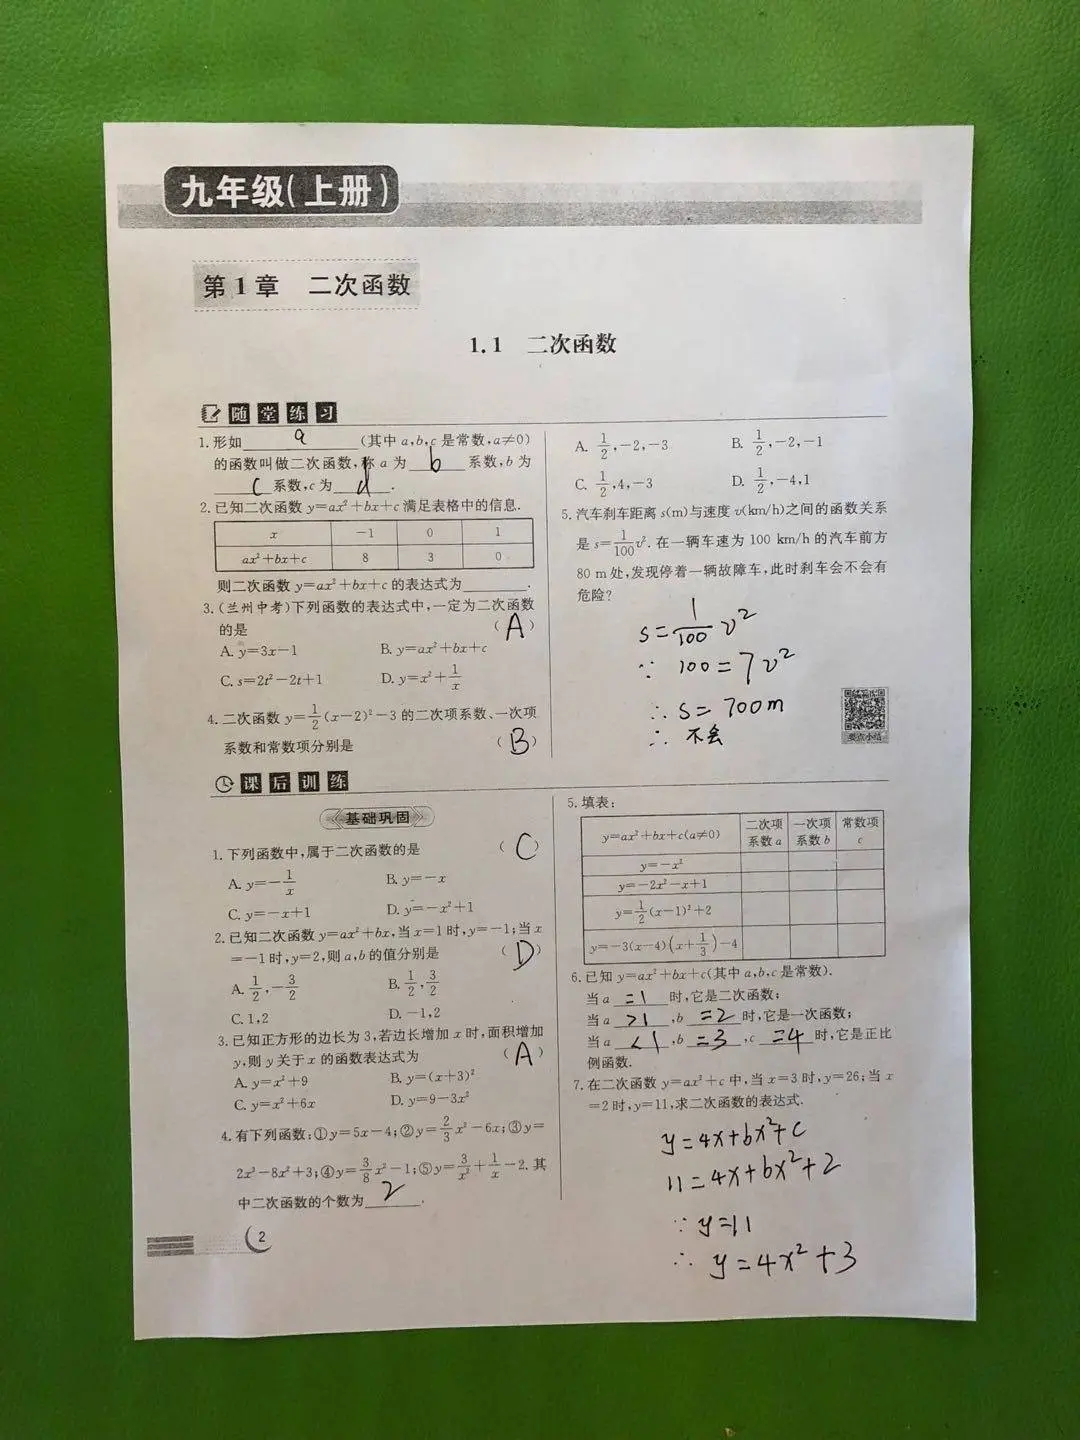 九年级(上册)
第1章 二次函数
1.1 二次函数
随堂练习
1.形如 a (其中a,b,c是常数,a≠0)
的函数叫做二次函数,称a为 b 系数,b为
c 系数,c为 d .
2.已知二次函数y=ax²+bx+c满足表格中的信息.
x -1 0 1
ax²+bx+c 8 3 0
则二次函数y=ax²+bx+c的表达式为 .
3.(兰州中考)下列函数的表达式中,一定为二次函数
的是 (A)
A. y=3x-1 B. y=ax²+bx+c
C. s=2t²-2t+1 D. y=x²+1/x
4.二次函数y=1/2(x-2)²-3的二次项系数、一次项
系数和常数项分别是 (B)
A. 1/2,-2,-3 B. 1/2,-2,-1
C. 1/2,4,-3 D. 1/2,-4,1
5.汽车刹车距离s(m)与速度v(km/h)之间的函数关系
是s=1/100v².在一辆车速为100 km/h的汽车前方
80 m处,发现停着一辆故障车,此时刹车会不会有
危险?
s=1/100 v²
∵ 100=7v²
∴ s=700m
∴ 不会
要点小结
课后训练
基础巩固
1.下列函数中,属于二次函数的是 (C)
A. y=-1/x B. y=-x
C. y=-x+1 D. y=-x²+1
2.已知二次函数y=ax²+bx,当x=1时,y=-1;当x
=-1时,y=2,则a,b的值分别是 (D)
A. 1/2,-3/2 B. 1/2,3/2
C. 1,2 D. -1,2
3.已知正方形的边长为3,若边长增加x时,面积增加
y,则y关于x的函数表达式为 (A)
A. y=x²+9 B. y=(x+3)²
C. y=x²+6x D. y=9-3x²
4.有下列函数:①y=5x-4;②y=2/3x²-6x;③y=
2x³-8x²+3;④y=3/8x²-1;⑤y=3/x²+1/x-2.其
中二次函数的个数为 2 .
2
5.填表:
y=ax²+bx+c(a≠0) 二次项系数a 一次项系数b 常数项c
y=-x²
y=-2x²-x+1
y=1/2(x-1)²+2
y=-3(x-4)(x+1/3)-4
6.已知y=ax²+bx+c(其中a,b,c是常数).
当a =1 时,它是二次函数;
当a >1 ,b =2 时,它是一次函数;
当a <1 ,b =3 ,c =4 时,它是正比
例函数.
7.在二次函数y=ax²+c中,当x=3时,y=26;当x
=2时,y=11,求二次函数的表达式.
y=4x+bx²+c
11=4x+bx²+2
∵ y=11
∴ y=4x²+3